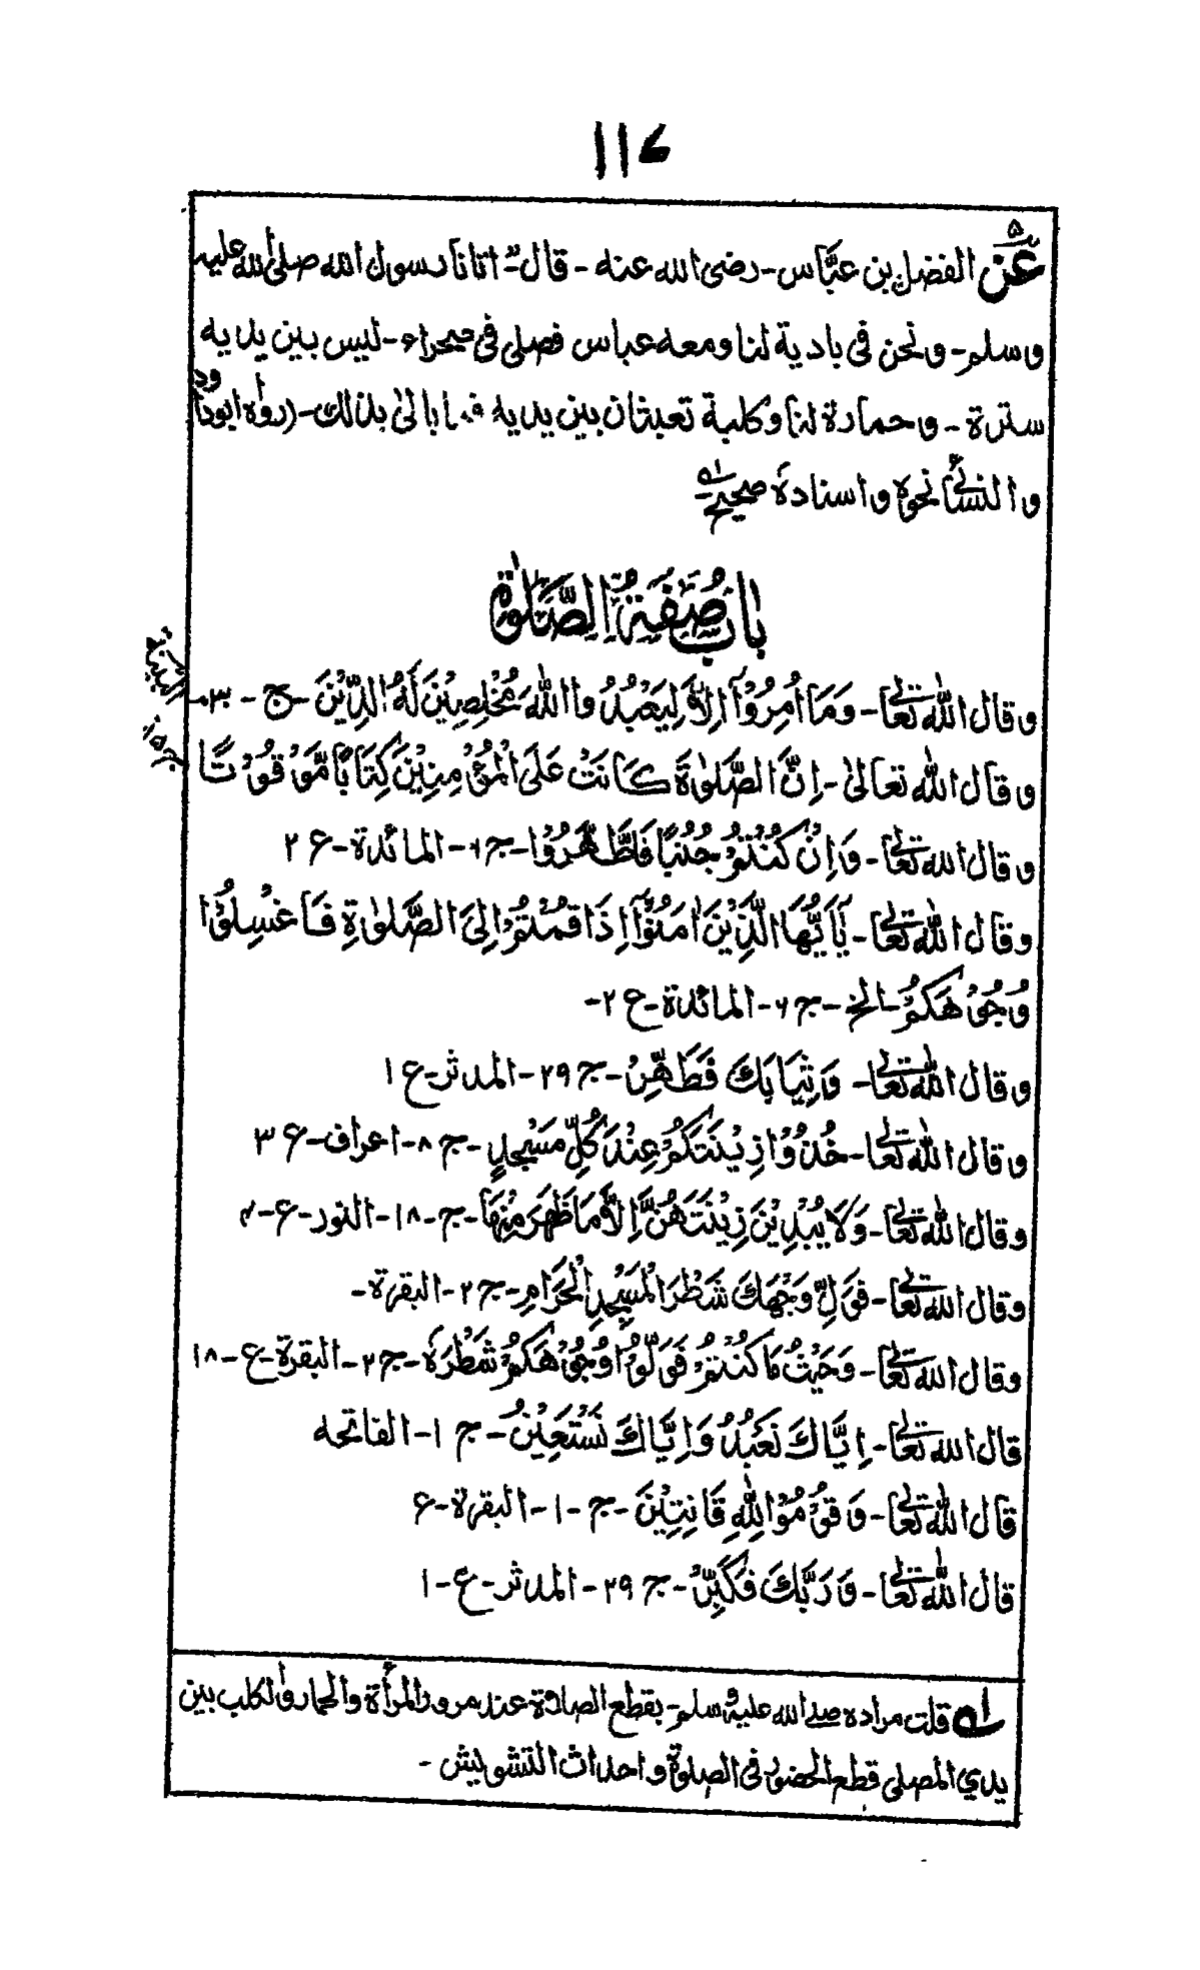 ۱۱۷
عَنْ الفضل بن عبَّاس - رضی الله عنه - قال - اتانا رسول الله صلی الله علیه
وسلم - ونحن فی بادیة لنا ومعه عباس فصلی فی صحراء - لیس بین یدیه
سترة - وحمارة لنا وکلبة تعبثان بین یدیه فما بالیٰ بذالك - (رواه ابوداود
والنسائی نحوه واسناده صحیح له
بَابُ صِفَةِ الصَّلٰوةِ
وقال الله تعالیٰ - وَمَا اُمِرُوْآ اِلَّا لِیَعْبُدُ وا اللهَ مُخْلِصِیْنَ لَهُ الدِّیْنَ - ج - ۳۰
البینة
وقال الله تعالیٰ - اِنَّ الصَّلٰوةَ کَانَتْ عَلَی الْمُؤْمِنِیْنَ کِتَابًا مَّوْقُوْتًا
ج ۵
وقال الله تعالیٰ - وَاِنْ کُنْتُمْ جُنُبًا فَاطَّهَّرُوْا - ج ۶ - المائدة - ع ۲
وقال الله تعالیٰ - یٰٓاَیُّهَا الَّذِیْنَ اٰمَنُوْٓا اِذَا قُمْتُمْ اِلَی الصَّلٰوةِ فَاغْسِلُوْا
وُجُوْهَکُمْ - الخ - ج ۶ - المائدة - ع ۲ -
وقال الله تعالیٰ - وَثِیَابَكَ فَطَهِّرْ - ج ۲۹ - المدثر - ع ۱
وقال الله تعالیٰ - خُذُوْا زِیْنَتَکُمْ عِنْدَ کُلِّ مَسْجِدٍ - ج ۸ - اعراف - ع ۳
وقال الله تعالیٰ - وَلَا یُبْدِیْنَ زِیْنَتَهُنَّ اِلَّا مَا ظَهَرَ مِنْهَا - ج - ۱۸ - النور - ع - ۴
وقال الله تعالیٰ - فَوَلِّ وَجْهَكَ شَطْرَ الْمَسْجِدِ الْحَرَامِ - ج ۲ - البقرة -
وقال الله تعالیٰ - وَحَیْثُ مَا کُنْتُمْ فَوَلُّوْا وُجُوْهَکُمْ شَطْرَهٗ - ج ۲ - البقرة - ع - ۱۸
قال الله تعالیٰ - اِیَّاكَ نَعْبُدُ وَاِیَّاكَ نَسْتَعِیْنُ - ج ۱ - الفاتحه
قال الله تعالیٰ - وَقُوْمُوْا لِلّٰهِ قَانِتِیْنَ - ج - ۱ - البقرة - ع
قال الله تعالیٰ - وَرَبَّكَ فَکَبِّرْ - ج ۲۹ - المدثر - ع - ۱
له قلت مراده صلی الله علیه وسلم - بقطع الصلوة عند مرور المرأة والحمار والکلب بین
یدی المصلی قطع الحضور فی الصلوة واحداث التشویش -